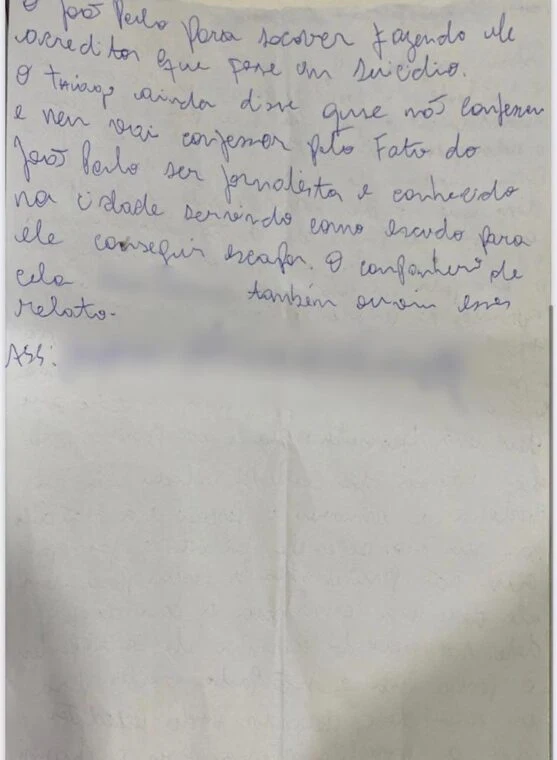 O João Paulo para socorer fazendo ele
acreditar que fose um suicidio.
O Thiago ainda disse que não confessou
e nem vai confessar pelo Fato do
João Paulo ser jornalista e conhecido
na cidade servindo como escudo para
ele conseguir escapar. O companheiro de
cela também ouviu esses
relato.
ASS: